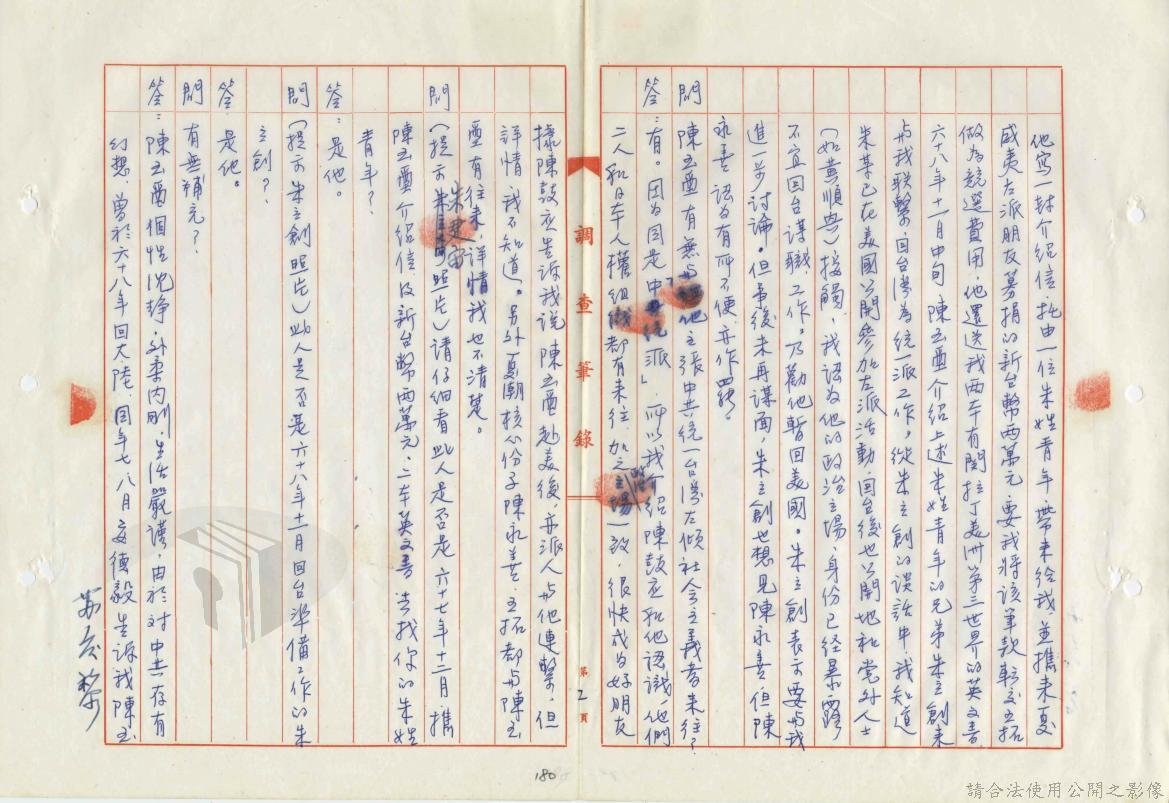 他寫一封介紹信,託由一位朱姓青年帶來給我並攜來夏
威夷左派朋友募捐的新台幣兩萬元,要我將該筆款轉交王拓
做為競選費用,他還送我兩本有關拉丁美洲第三世界的英文書
六十八年十一月中旬陳玉酉介紹上述朱姓青年的兄弟朱立創來
與我联繫,回台灣為統一派工作,從朱立創的談話中,我知道
朱某已在美國公開參加左派活動,回台後也公開地和党外人士
(如黃順興)接觸,我認為他的政治立場、身份已經暴露
不宜回台謀職、工作,乃勸他暫回美國。朱立創表示要與我
進一步討論,但事後未再謀面,朱立創也想見陳永善,但陳
永善認為有所不便,亦作罷。
問 陳玉酉有無與其他主張中共統一台灣左傾社会主義者來往?
答:有。因為同是中共「統派」,所以我介紹陳鼓应和他認識,他們
二人和日本人權組織都有來往,加之政治立場一致,很快成为好朋友
第2頁
調查筆錄
據陳鼓应告訴我說,陳玉酉赴美後,亦派人与他連繫,但
詳情我不知道。另外夏潮核心份子陳永善、王拓都与陳玉
酉有往來,詳情我也不清楚。
問(提示朱建 照片)請仔細看此人是否是六十七年十二月攜
陳玉酉介紹信及新台幣兩萬元、二本英文書去找你的朱姓
青年?
答:是他。
問(提示朱立創照片)此人是否是六十八年十一月回台準備工作的朱
立創?
答:是他。
問 有無補充?
答:陳玉酉個性沈靜,外柔内剛,生活嚴謹,由於对中共存有
幻想,曾於六十八年回大陸,同年七、八月文德毅告訴我陳玉
蘇慶黎
180
請合法使用公開之影像